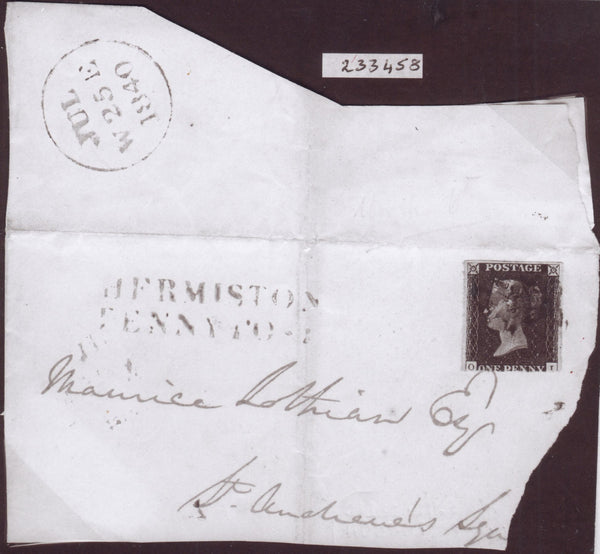 233458
JUL
W 25 E
1840
POSTAGE
HERMISTON
PENNY PO
O I
ONE PENNY
Maurice Lothian Esq
St. Andrew's Squ